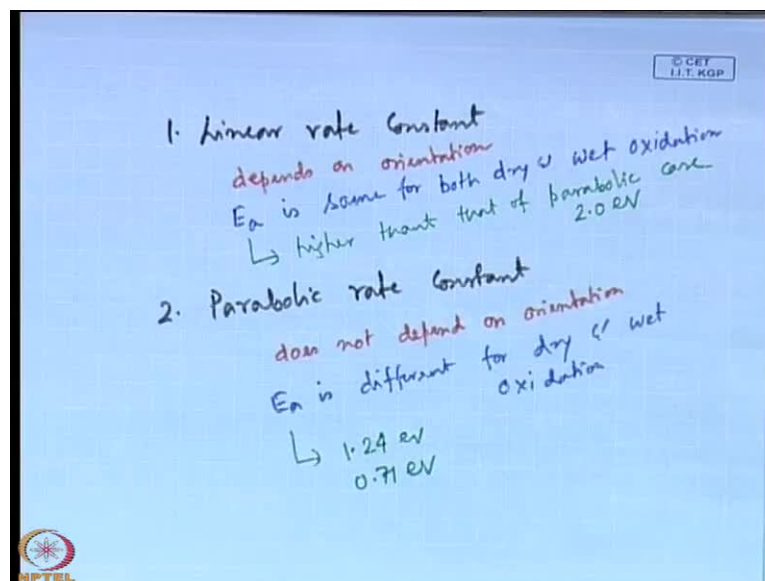 © CET
I.I.T. KGP
1. Linear rate Constant
depends on orientation
Ea is same for both dry & wet oxidation
↳ higher thant that of parabolic case
2.0 eV
2. Parabolic rate Constant
does not depend on orientation
Ea is different for dry & wet
oxidation
↳ 1.24 eV
0.71 eV
NPTEL